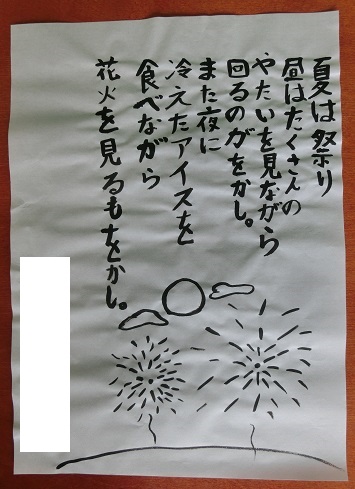 夏は祭り
昼はたくさんの
やたいを見ながら
回るのがをかし。
また夜に
冷えたアイスを
食べながら
花火を見るもをかし。